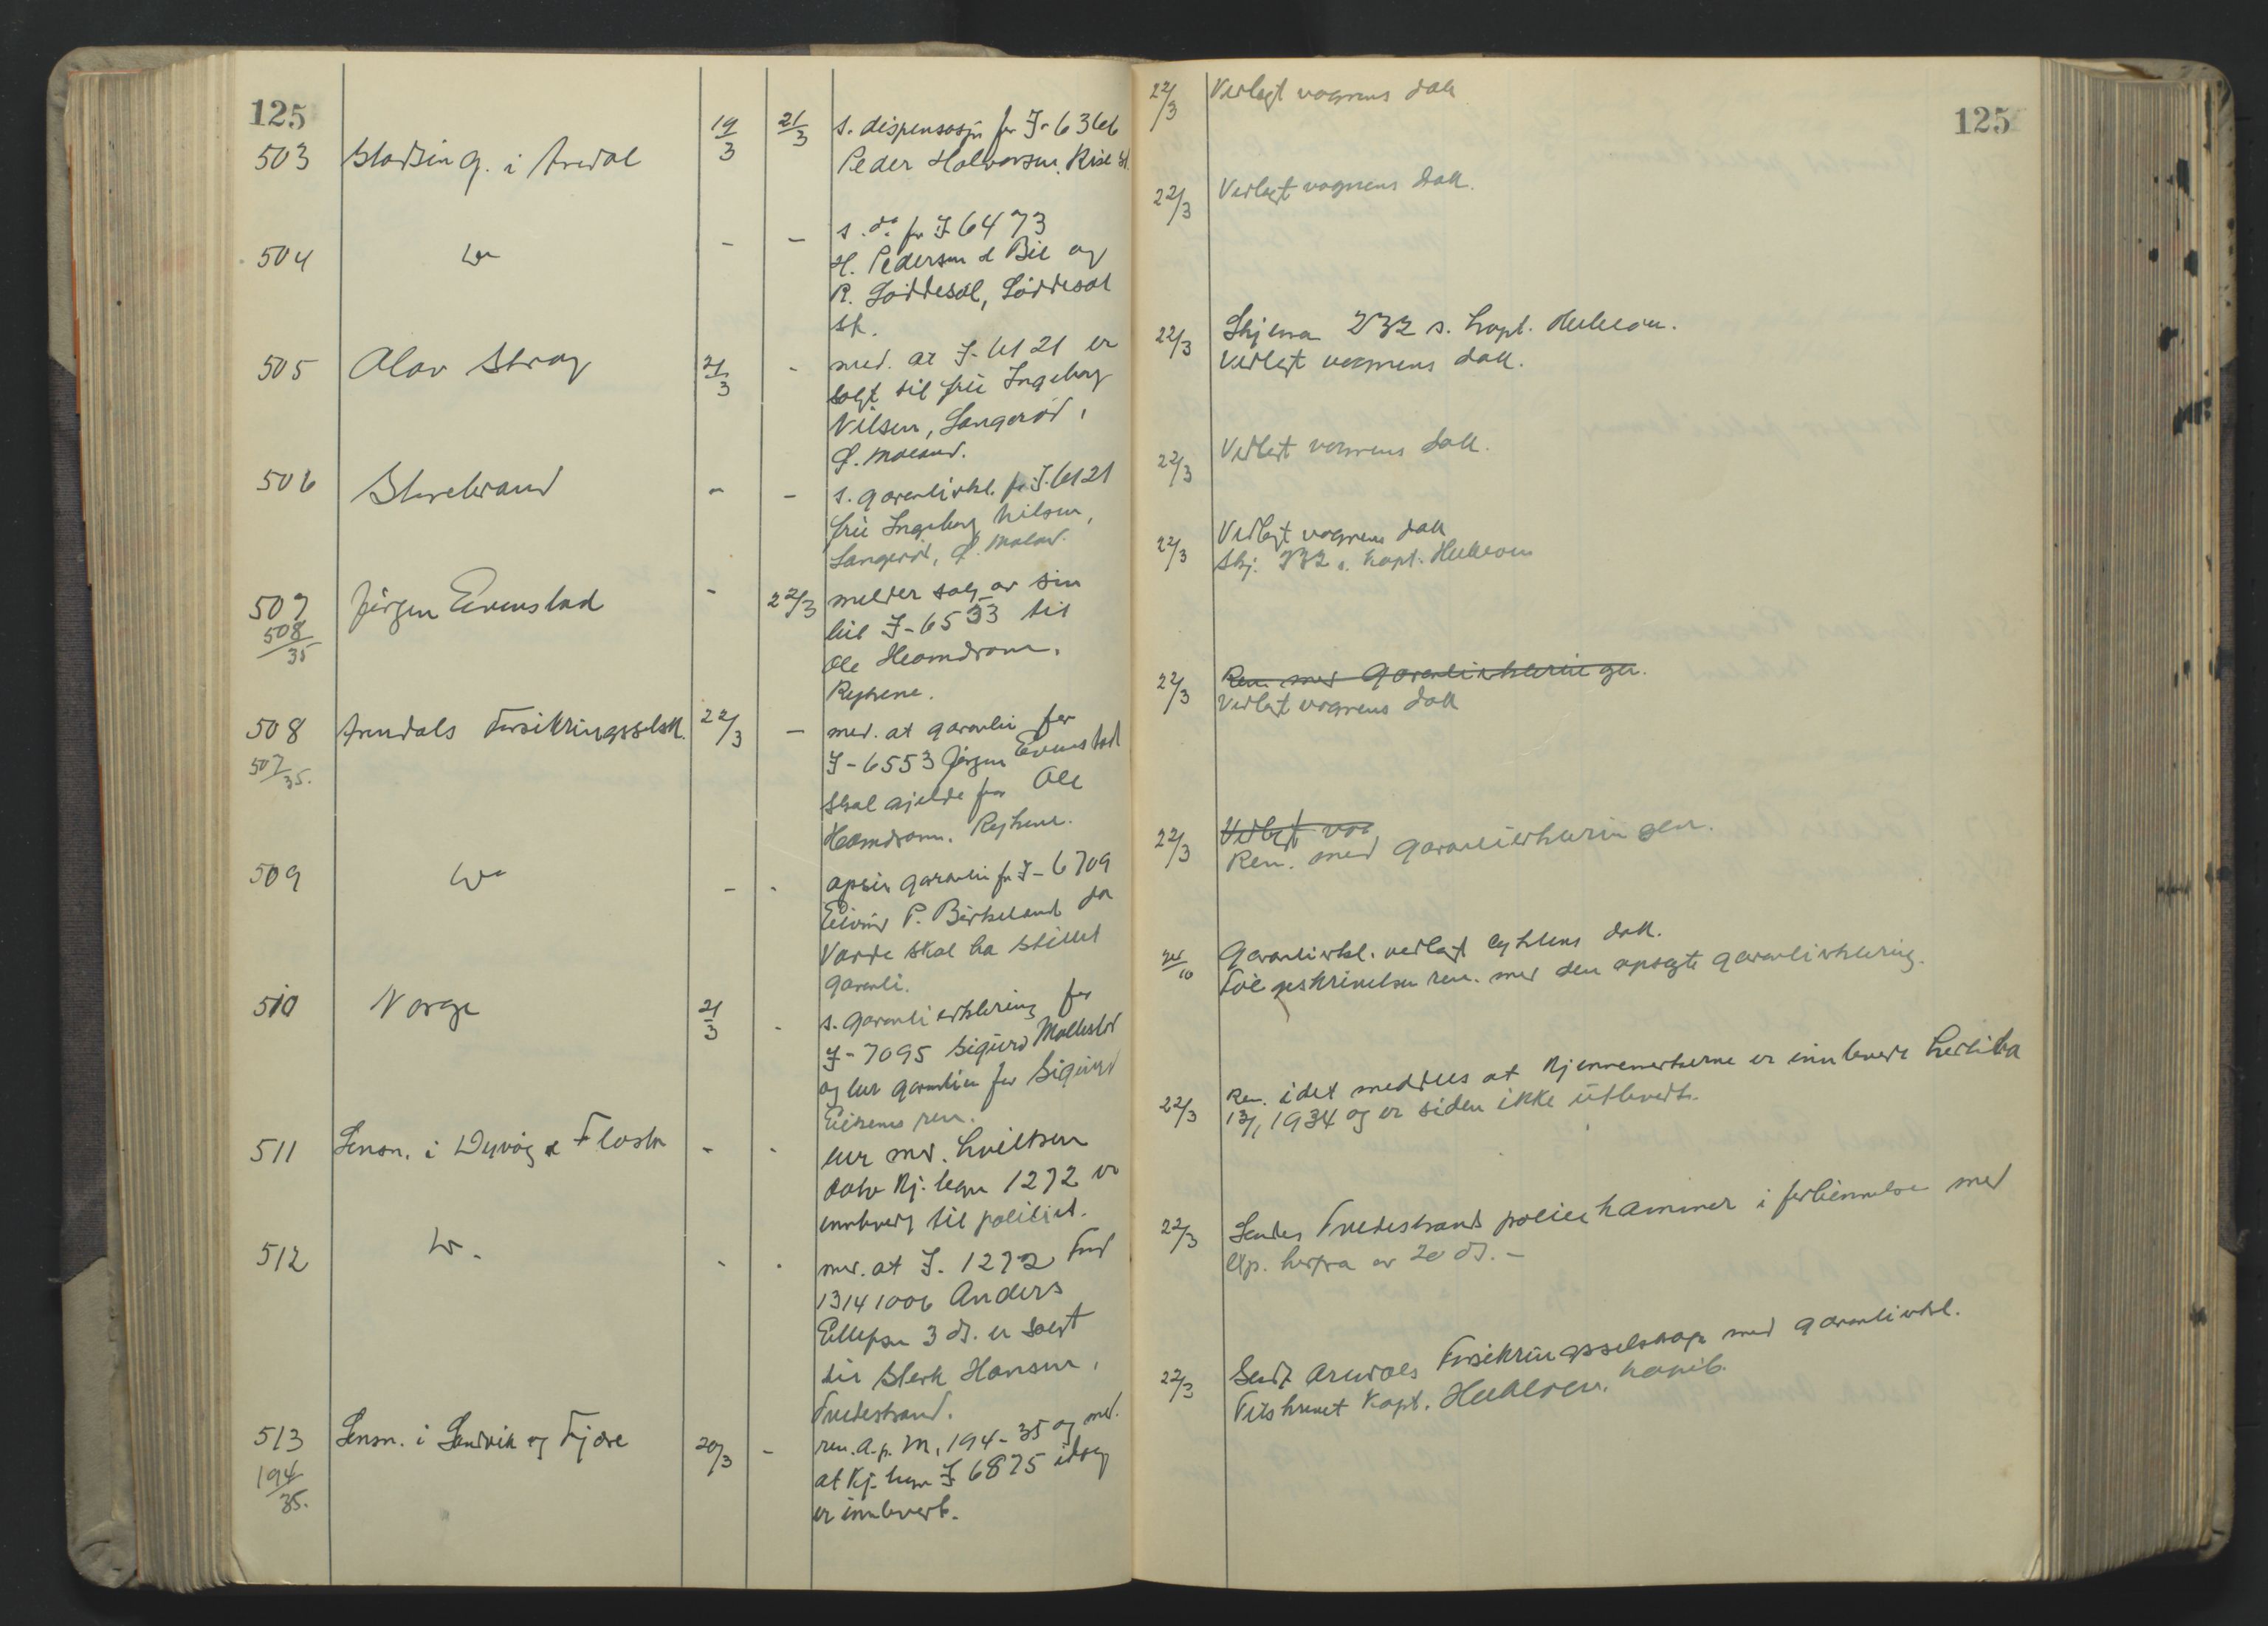 125
503 Stadsing. i Arendal 19/3 21/3 s. dispensasjn for I-6366
Peder Halvorsen, Rise st.
504 do - - s. do for I 6473
H. Pedersen d Bie og
R. Løddesøl, Løddesøl
st.
505 Olav Stray 21/3 - med. at I-6121 er
solgt til frü Ingeborg
Nilsen, Langerød,
Ø. Moland.
506 Storebrand - - s. garantierkl. for I-6121
frü Ingeborg Nilsen,
Langerød, Ø. Moland.
507 Jörgen Evenstad - 22/3 melder salg av sin
508/35 bil I-6553 til
Ole Heomdrom,
Reykene.
508 Arendals Forsikringsselsk. 22/3 - med. at garanti for
507/35. I-6553 Jörgen Evenstad
skal gjelde for Ole
Heomdrom. Reykene.
509 do - - opsier garanti for I-6709
Eivind P. Birkeland da
Varde skal ha stillet
garanti.
510 Norge 21/3 - s. garantierklæring for
I-7095 Sigurd Mollestad
og ber garantien for Sigurd
Eikenes ren.
511 Lensm. i Dyvåg & Flosta - - ber med. hvilken
dato Kj. tegn 1272 er
innleverg til politiet.
512 do. - - med. at I. 1272 Ford
13141006 Anders
Ellefsen 3 ds. er solgt
til Sterk Hansen,
Tvedestrand.
513 Lensm. i Landvik og Fjære 20/3 - ren. a.p. M, 194-35 og med.
194/35. at Kj. tegn I 6875 idag
er innlevert.
125
22/3 Vedlagt vognens dok
22/3 Vedlagt vognens dok.
22/3 Skjema 232 s. kapt. Hukeom.
Vedlagt vognens dok.
22/3 Vedlagt vognens dok.
22/3 Vedlagt vognens dok
Skj. 232 s. kapt. Hukeom
22/3 Ren. med garantierklæringen.
Vedlagt vognens dok
22/3 Vedlagt vog
Ren. med garantierklæringen.
Garantierkl. vedlagt cyklens dok.
Følgeskrivelsen ren. med den opsagte garantierklæring.
22/3 Ren. idet meddeles at kjennemerkerne er innlevert hertil fra
13/1 1934 og er siden ikke utlevert.
22/3 Sendes Tvedestrand politikammer i forbinnelse med
exp. herfra av 20 ds. -
22/3 Sendt Arendals Forsikringsselskap med garantierkl.
Tilskrevet kapt. Hukeom.